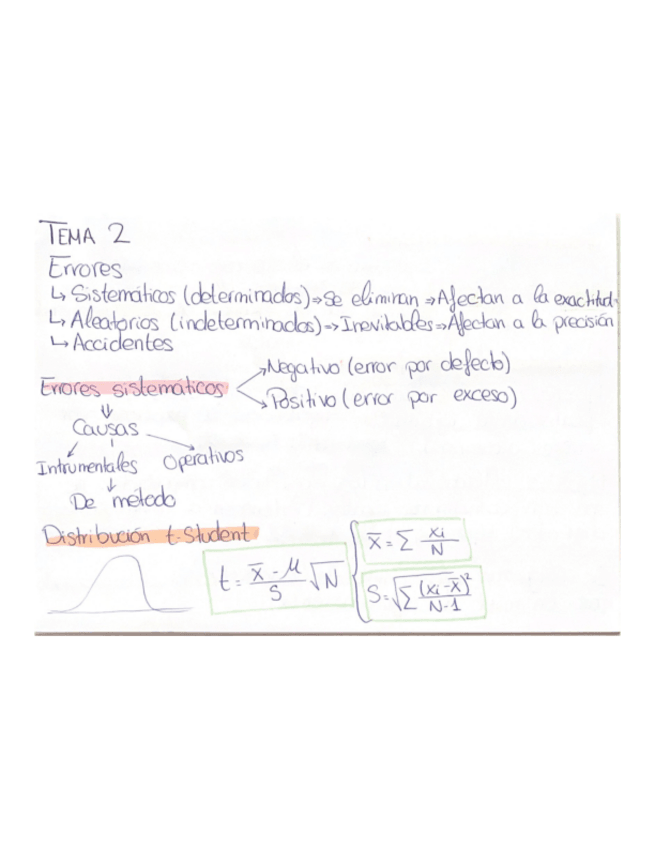 TEMA 2
Errores
↳ Sistemáticos (determinados) → Se eliminan → Afectan a la exactitud.
↳ Aleatorios (indeterminados) → Inevitables → Afectan a la precisión
↳ Accidentes
Errores sistemáticos
Negativo (error por defecto)
Positivo (error por exceso)
Causas
Intrumentales Operativos
De método
Distribución t-Student
t = (x̄ - μ)/S √N
x̄ = Σ xi/N
S = √(Σ (xi - x̄)²/(N-1))